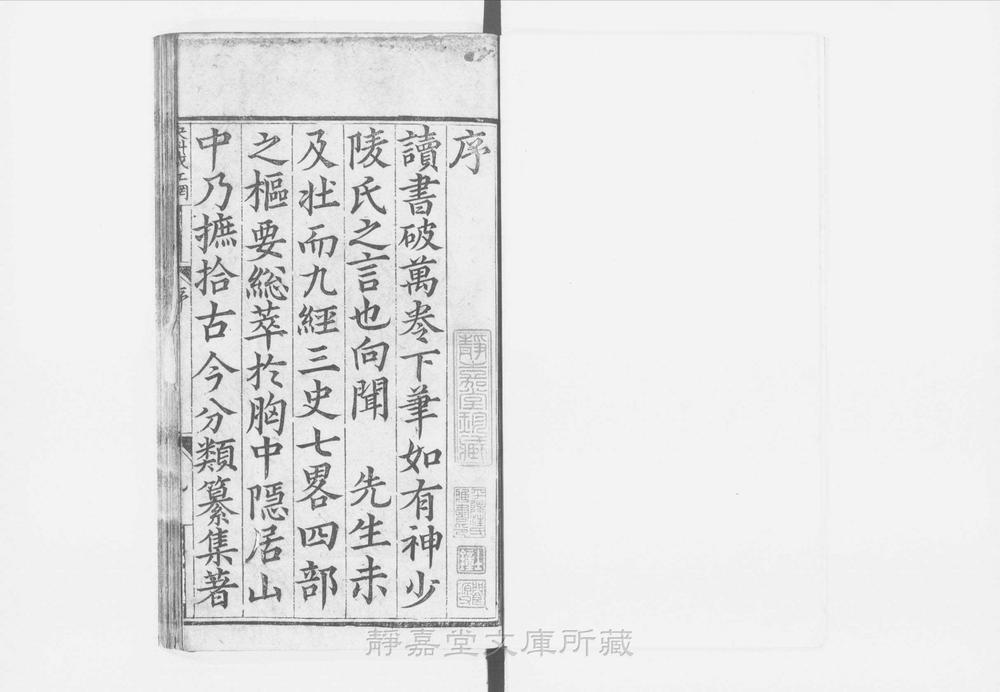 序
讀書破萬卷下筆如有神少
陵氏之言也向聞　先生未
及壯而九經三史七畧四部
之樞要總萃於胸中隠居山
中乃摭拾古今分類纂集著
序
靜嘉堂珍藏
靜嘉堂文庫所藏